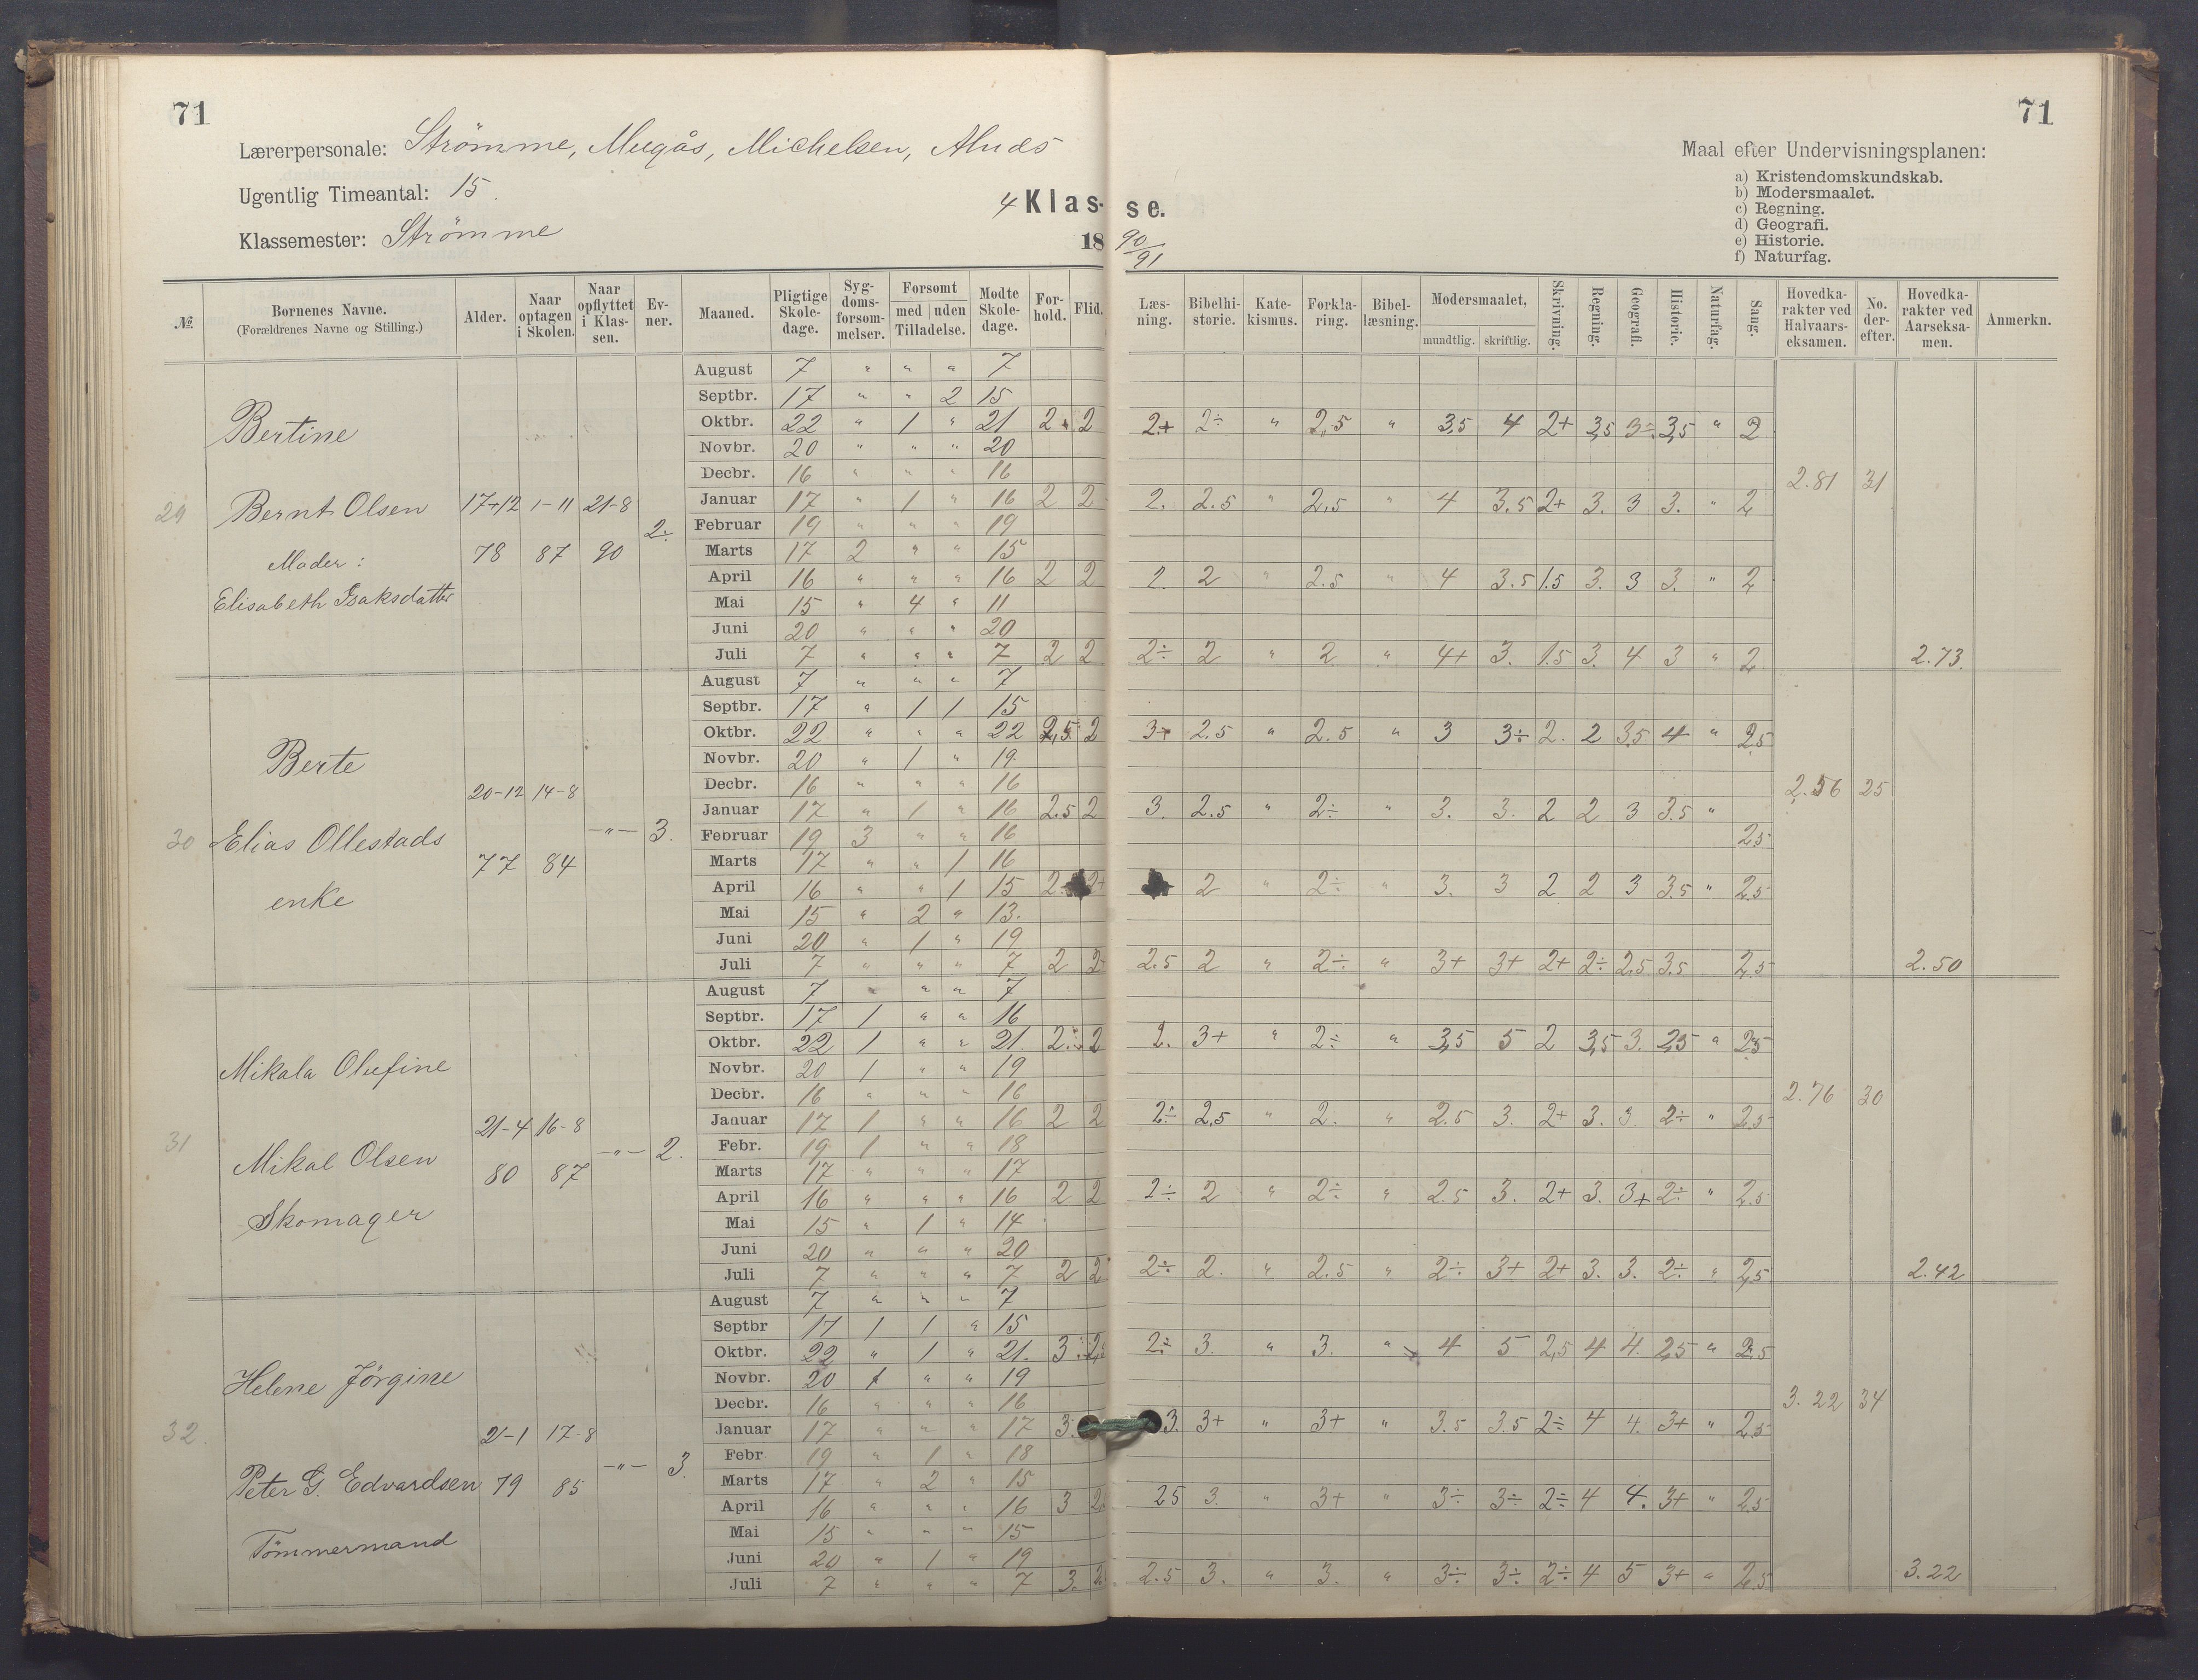 71
71
Lærerpersonale: Strömme, Mugås, Michelsen,
Ugentlig Timeantal: 15.
Klassemester: Strömme
4 Klasse.
18 90/91
Maal efter Undervisningsplanen:
a) Kristendomskundskab.
b) Modersmaalet.
c) Regning.
d) Geografi.
e) Historie.
f) Naturfag.
№ Børnenes Navne. (Forældrenes Navne og Stilling.) Alder. Naar optagen i Skolen. Naar opflyttet i Klassen. Evner. Maaned. Pligtige Skoledage. Sygdomsforsømmelser. Forsømt med uden Tilladelse. Mødte Skoledage. Forhold. Flid. Læsning. Bibelhistorie. Katekismus. Forklaring. Bibellæsning. Modersmaalet, mundtlig. skriftlig. Skrivning. Regning. Geografi. Historie. Naturfag. Sang. Hovedkarakter ved Halvaarseksamen. No. derefter. Hovedkarakter ved Aarseksamen. Anmerkn.
29 Bertine
Bernt Olsen
Moder:
Elisabeth Isaksdatter
17-12 78 1-11 87 21-8 90 2÷
August 7 " " " 7
Septbr. 17 " " 2 15
Oktbr. 22 " 1 " 21 2 2 2+ 2÷ " 2,5 " 3,5 4 2+ 3,5 3÷ 3,5 " 2
Novbr. 20 " " " 20
Decbr. 16 " " " 16 2.81 31
Januar 17 " 1 " 16 2 2 2. 2.5 " 2,5 " 4 3.5 2+ 3. 3 3. " 2
Februar 19 " " " 19
Marts 17 2 " " 15
April 16 " " " 16 2 2 2. 2 " 2.5 " 4 3.5 1.5 3. 3 3. " 2
Mai 15 " 4 " 11
Juni 20 " " " 20
Juli 7 " " " 7 2 2 2÷ 2 " 2 " 4+ 3. 1.5 3. 4 3 " 2 2.73.
30 Berte
Elias Ollestads
enke
20-12 77 14-8 84 -"- 3.
August 7 " " " 7
Septbr. 17 " 1 1 15
Oktbr. 22 " " " 22 2,5 2 3+ 2.5 " 2.5 " 3 3÷ 2. 2 3,5 4 " 2,5
Novbr. 20 " 1 " 19
Decbr. 16 " " " 16 2.56 25
Januar 17 " 1 " 16 2.5 2 3. 2.5 " 2÷ " 3. 3. 2 2 3 3.5 "
Februar 19 3 " " 16 2.5
Marts 17 " " 1 16
April 16 " " 1 15 2+ 2 " 2÷ " 3. 3 2 2 3 3.5 " 2.5
Mai 15 " 2 " 13.
Juni 20 " 1 " 19
Juli 7 " " " 7 2 2+ 2.5 2 " 2÷ " 3+ 3+ 2+ 2÷ 2.5 3.5 2,5 2.50
31 Mikala Olufine
Mikal Olsen
Skomager
21-4 80 16-8 87 -"- 2.
August 7 " " " 7
Septbr. 17 1 " " 16
Oktbr. 22 1 " " 21. 2÷ 2 2. 3+ " 2÷ " 3,5 5 2 3,5 3. 2,5 " 2,5
Novbr. 20 1 " " 19
Decbr. 16 " " " 16 2.76 30
Januar 17 1 " " 16 2 2 2÷ 2,5 " 2. " 2.5 3. 2+ 3. 3. 2÷ " 2.5
Febr. 19 1 " " 18
Marts 17 " " " 17
April 16 " " " 16 2 2 2÷ 2 " 2÷ " 2.5 3. 2+ 3. 3+ 2÷ " 2.5
Mai 15 " 1 " 14
Juni 20 " " " 20
Juli 7 " " " 7 2 2 2÷ 2. " 2.5 " 2÷ 3+ 2+ 3. 3. 2÷ " 2,5 2.42
32. Helene Jörgine
Peter G. Edvardsen
Tömmermand
21-1 79 17-8 85 -"- 3.
August 7 " " " 7
Septbr 17 1 1 " 15
Oktbr. 22 " 1 " 21. 3÷ 2,5 2÷ 3. " 3. " 4 5 2,5 4 4. 2,5 " 2.5
Novbr. 20 1 " " 19
Decbr. 16 " " " 16 3.22 34
Januar 17 " " " 17 3. 3. 3+ " 3+ " 3.5 3.5 2÷ 4 4. 3+ " 2.5
Febr 19 " 1 " 18
Marts 17 " 2 " 15
April 16 " " " 16 3 2 2 5 3. " 3+ " 3÷ 3÷ 2÷ 4 4. 3+ " 2,5
Mai 15 " " " 15
Juni 20 " 1 " 19
Juli 7 " " " 7 3. 2 2.5 3. " 3. " 3÷ 3÷ 2÷ 4 5 3+ " 2,5 3.22